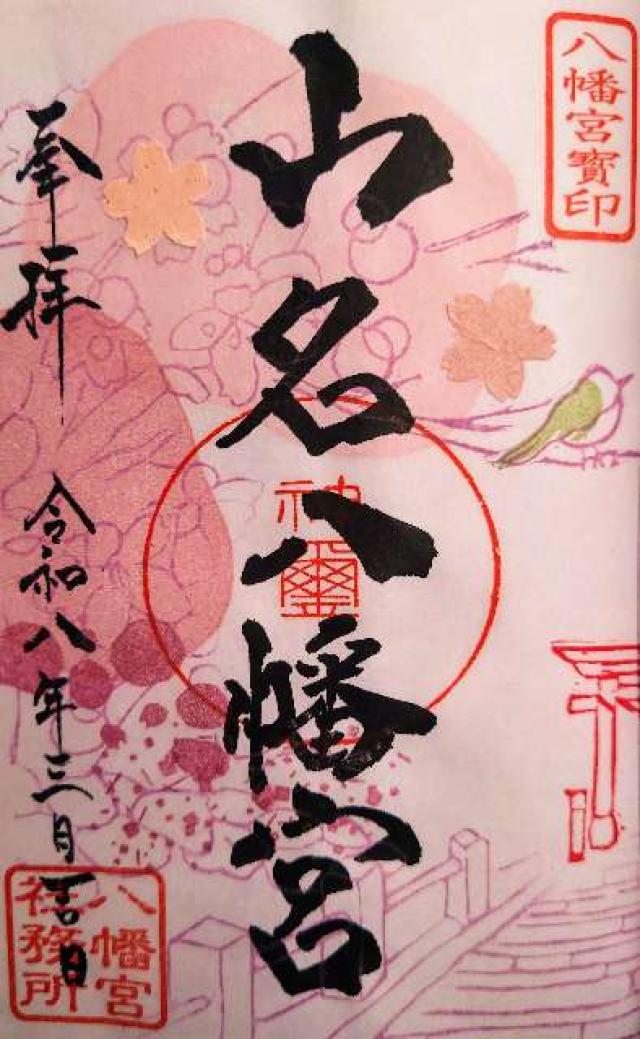 八幡宮寳印
山名八幡宮
神璽
奉拝
令和八年三月吉日
八幡宮
社務所